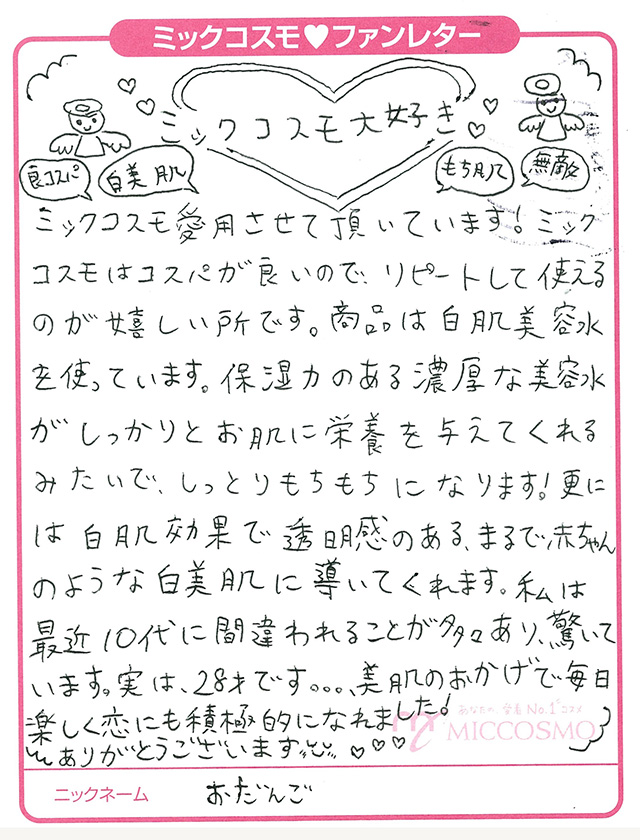 ミックコスモ♥ファンレター
ミックコスモ大好き
良コスパ
白美肌
もち肌
無敵
ミックコスモ愛用させて頂いています!ミック
コスモはコスパが良いので、リピートして使える
のが嬉しい所です。商品は白肌美容水
を使っています。保湿力のある濃厚な美容水
がしっかりとお肌に栄養を与えてくれる
みたいで、しっとりもちもちになります!更に
は白肌効果で透明感のある、まるで赤ちゃん
のような白美肌に導いてくれます。私は
最近10代に間違われることが多々あり、驚いて
います。実は、28才です。。。、美肌のおかげで毎日
楽しく恋にも積極的になれました!
ありがとうございます
あなたの、愛着No.1コスメ
MICCOSMO
ニックネーム おだんご